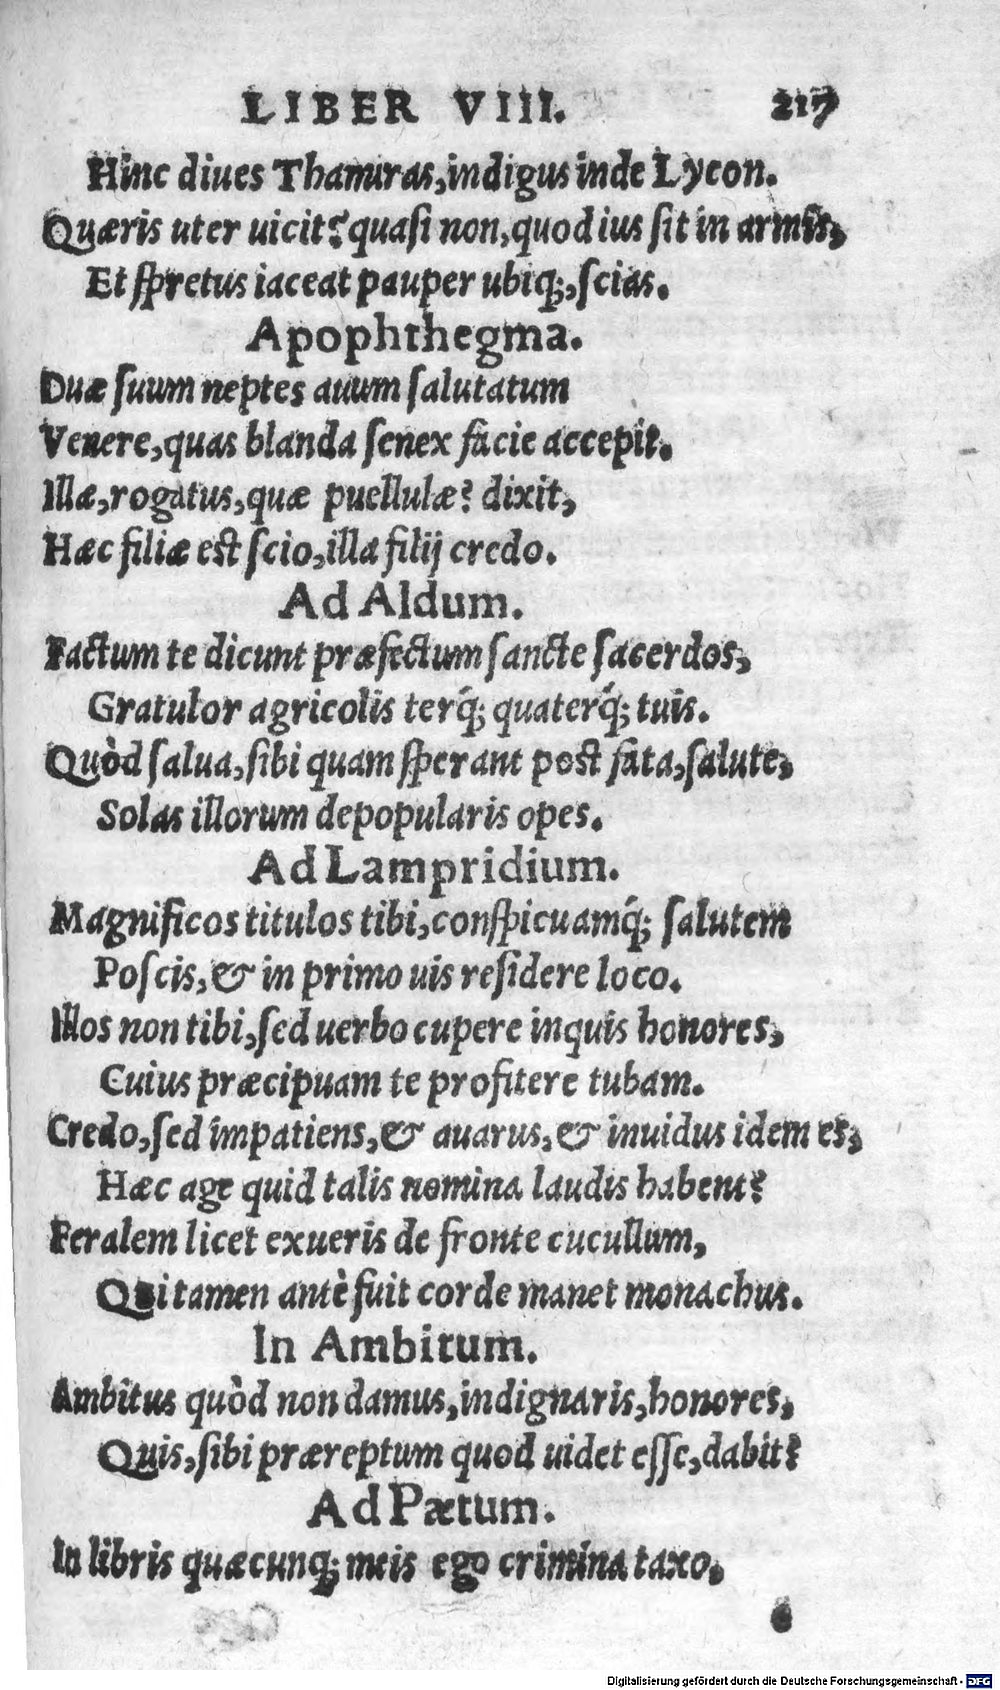 LIBER VIII. 217
Hinc diues Thamras, indigus inde Lycon.
Quæris uter uicit? quasi non, quod ius sit in armis,
Et spretus iaceat pauper ubiq;, scias.
Apophthegma.
Duæ suum neptes auum salutatum
Venere, quas blanda senex facie accepit.
Illæ, rogatus, quæ puellulæ? dixit,
Hæc filiæ est scio, illa filij credo.
Ad Aldum.
Factum te dicunt præfectum sancte sacerdos,
Gratulor agricolis terq́; quaterq́; tuis.
Quòd salua, sibi quam sperant post fata, salute,
Solas illorum depopularis opes.
Ad Lampridium.
Magnificos titulos tibi, conspicuamq́; salutem
Poscis, & in primo uis residere loco.
Illos non tibi, sed uerbo cupere inquis honores,
Cuius præcipuam te profitere tubam.
Credo, sed impatiens, & auarus, & inuidus idem es,
Hæc age quid talis nomina laudis habent?
Feralem licet exueris de fronte cucullum,
Qui tamen antè fuit corde manet monachus.
In Ambitum.
Ambitus quòd non damus, indignaris, honores,
Quis, sibi præreptum quod uidet esse, dabit?
Ad Pætum.
In libris quæcunq; meis ego crimina taxo,
Digitalisierung gefördert durch die Deutsche Forschungsgemeinschaft - DFG